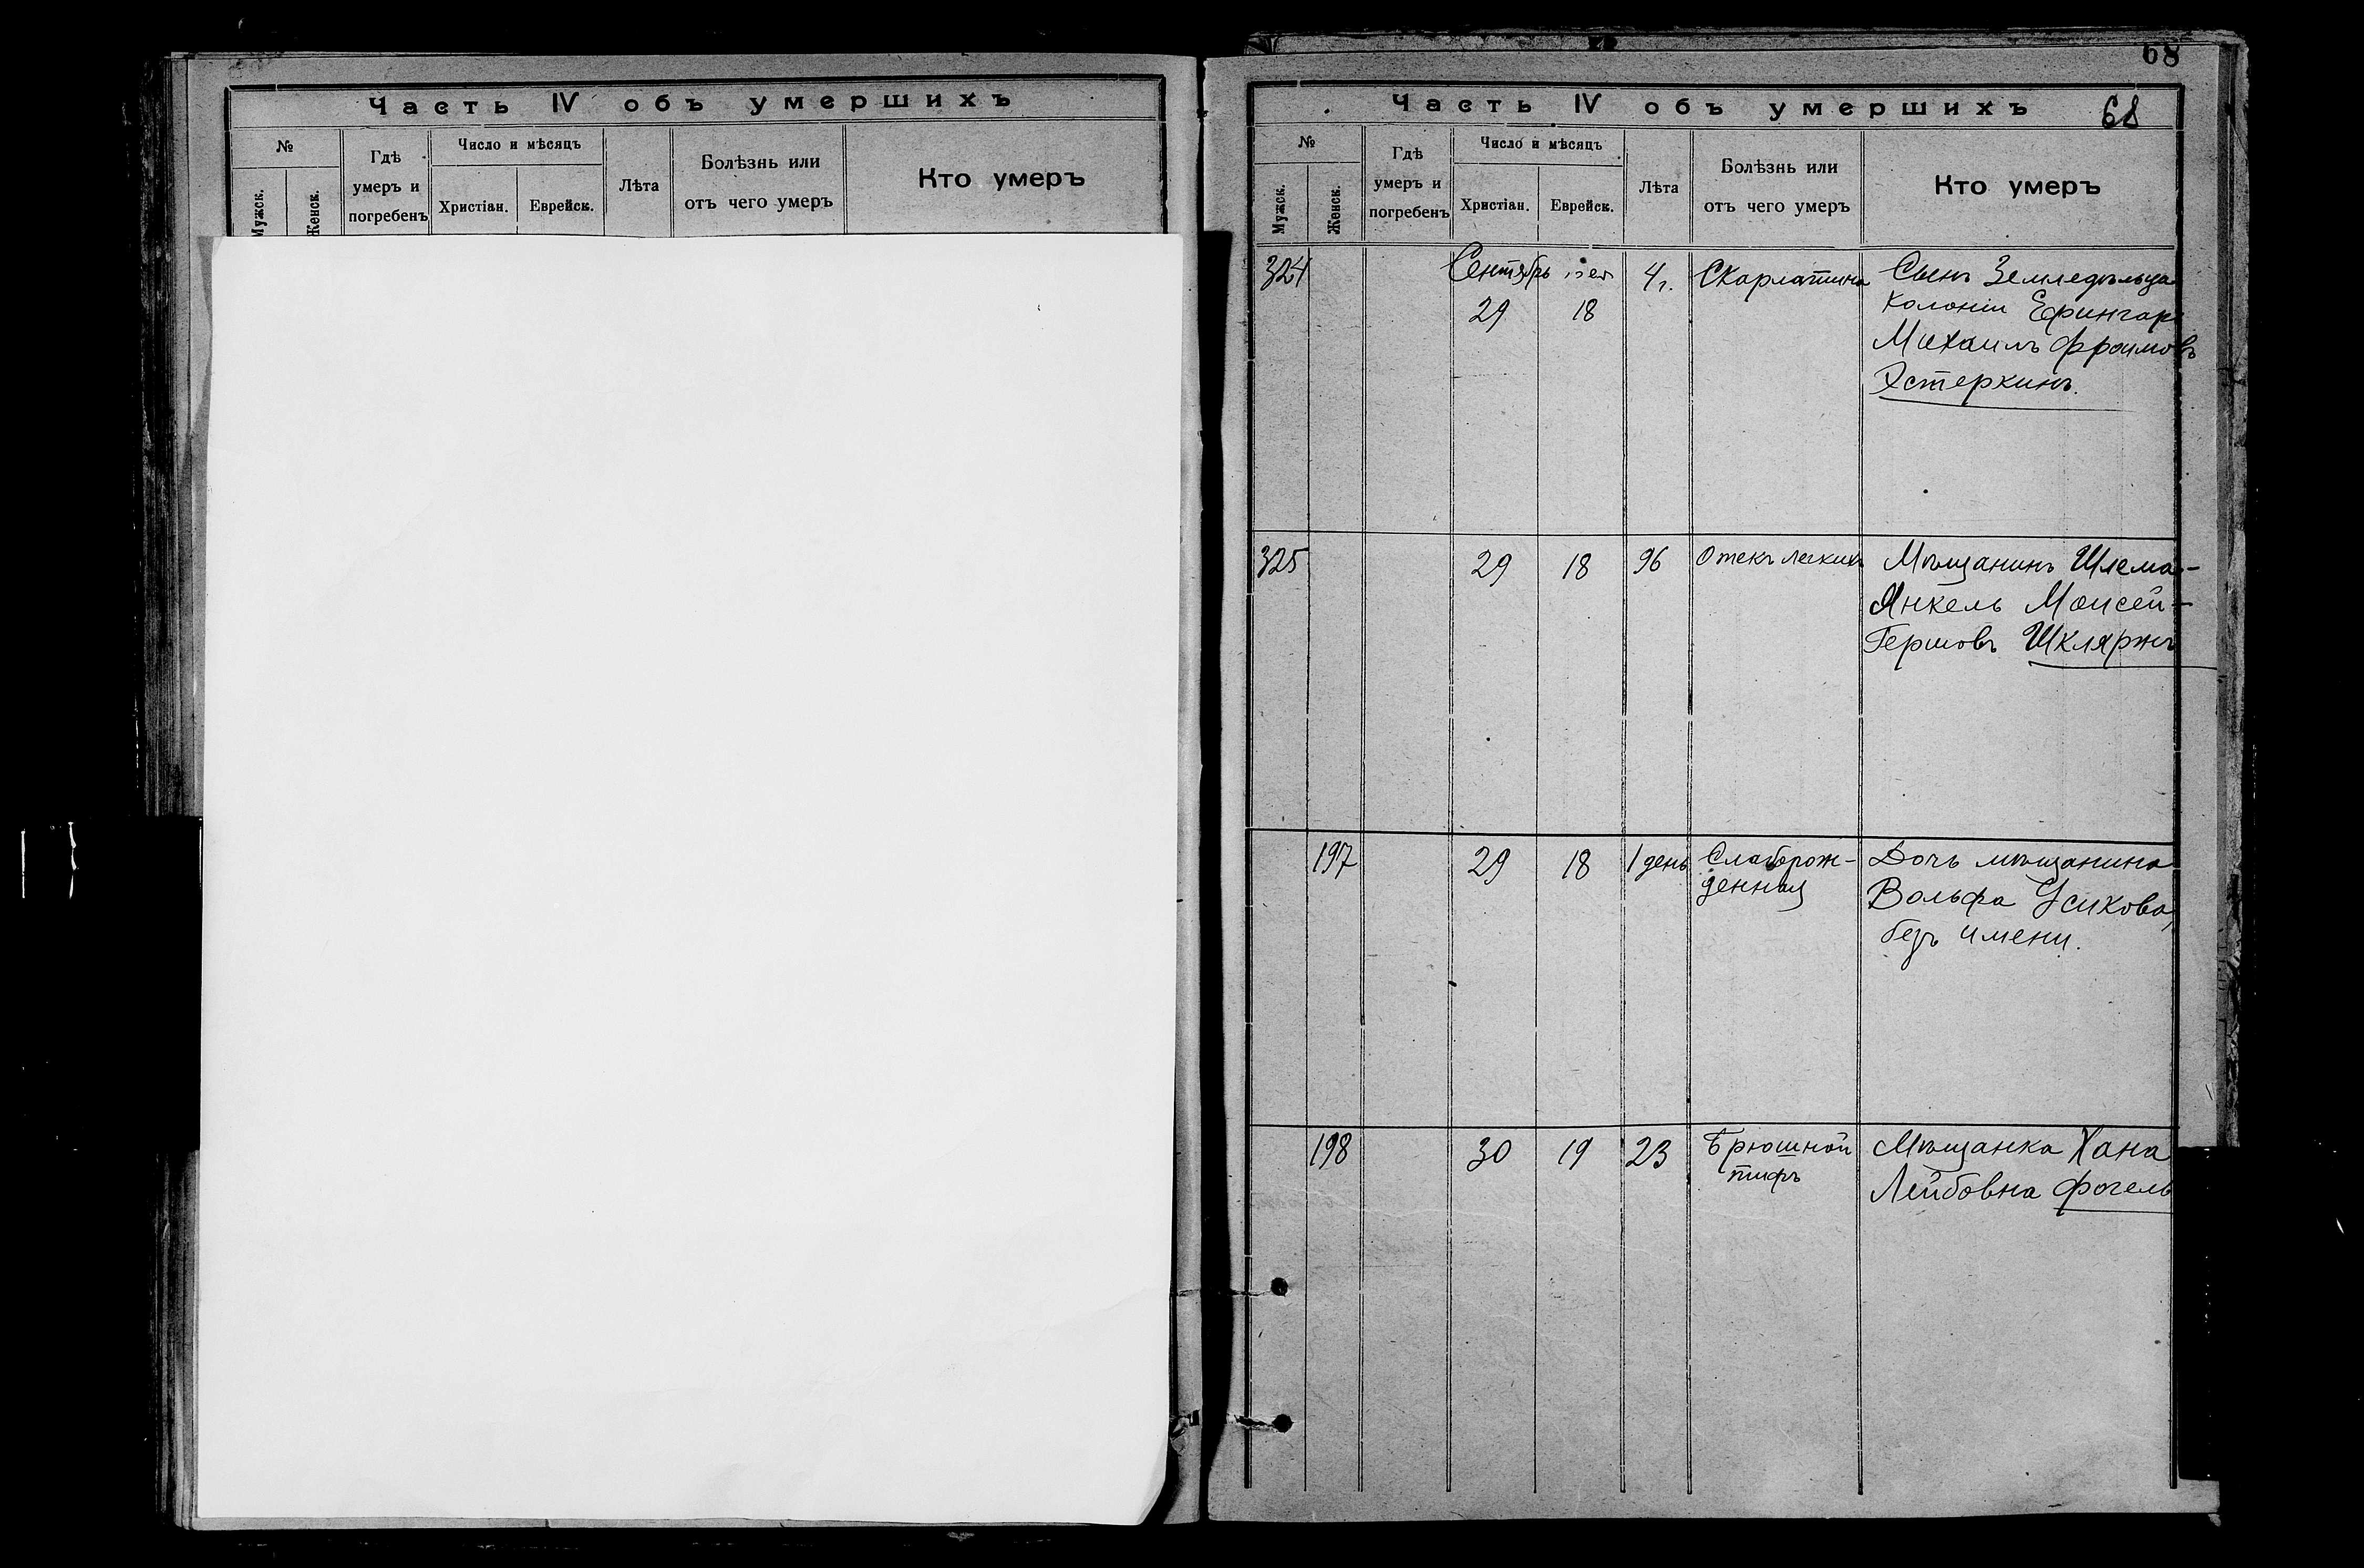 Часть IV объ умершихъ
№
Мужск.
Женск.
Гдѣ
умеръ и
погребенъ
Число и мѣсяцъ
Христіан.
Еврейск.
Лѣта
Болѣзнь или
отъ чего умеръ
Кто умеръ
68
Часть IV объ умершихъ
68
№
Мужск.
Женск.
Гдѣ
умеръ и
погребенъ
Число и мѣсяцъ
Христіан.
Еврейск.
Лѣта
Болѣзнь или
отъ чего умеръ
Кто умеръ
324
Сентябрь
29
18
4 г.
Скарлатина
Сынъ Земледѣльца
Колоніи Ефингаръ
Михаилъ Фроимовъ
Эстеркинъ.
325
29
18
96
Отекъ легкихъ
Мѣщанинъ Шлема-
Янкель Моисей-
Гершовъ
197
29
18
1 день
Слаборож-
денная
Дочь мѣщанина
Вольфа Усикова,
безъ имени.
198
30
19
23
Брюшной
тифъ
Мѣщанка Хана
Лейбовна Фогель